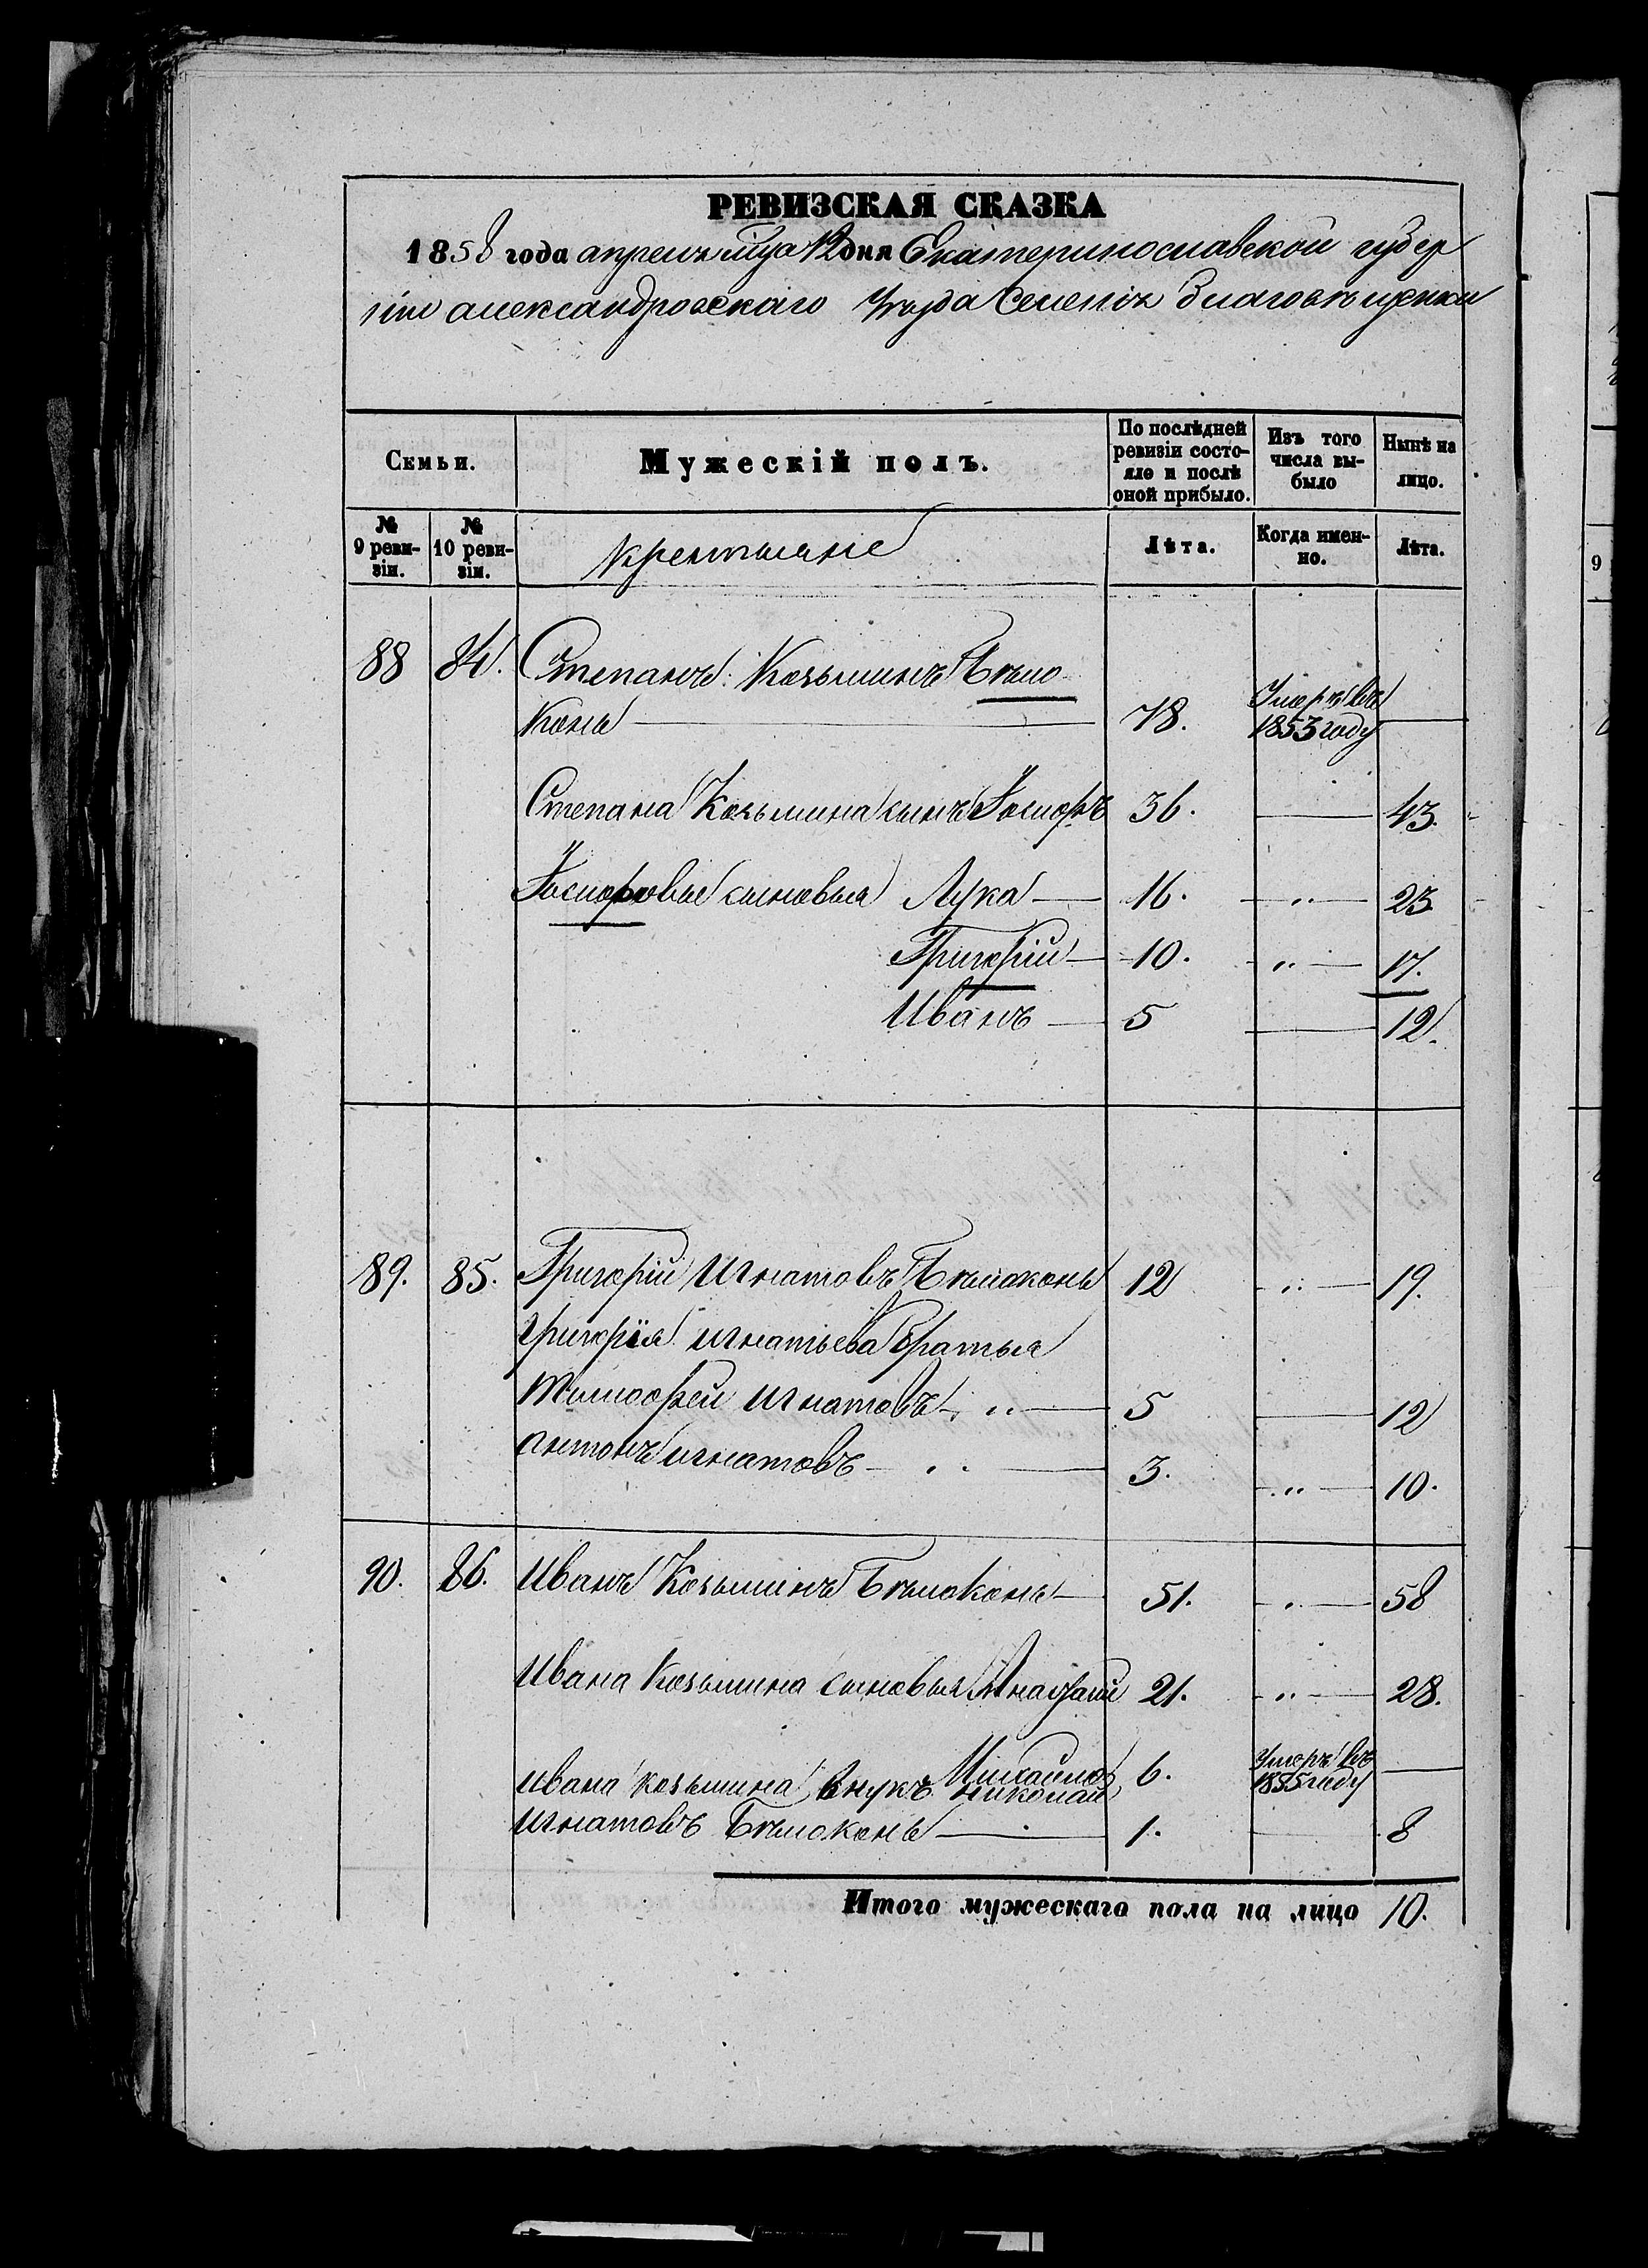 РЕВИЗСКАЯ СКАЗКА
1858 года апрель мца 12 дня Екатеринославской губер
ніи александровскаго уезда Селенія благовѣщенки
Семьи.
Мужескій полъ.
По послѣдней ревизіи состояло и послѣ оной прибыло.
Изъ того числа выбыло
Нынѣ на лицо.
№ 9 ревизіи.
№ 10 ревизіи.
крестьяне
Лѣта.
Когда именно.
Лѣта.
88 84. Степанъ Козьминъ Бѣло
конь 78. Умеръ въ 1853 году
Степана Козьмина сынъ Іосифъ 36. 43.
Іосифовы сыновья Лука 16. 23.
Григорій 10. 17.
Иванъ 5 12.
89. 85. Григорій Игнатовъ Бѣлоконь 12 19.
григорія игнатьева братья
тимофей игнатовъ 5 12
антонъ игнатовъ 3. 10.
90. 86. Иванъ Козьминъ Бѣлоконь 51. 58
Ивана Козьмина сыновья 21. 28.
Михаилъ 6. Умеръ въ 1855 году
ивана козьмина внукъ николай
игнатовъ Бѣлоконь 1. 8
Итого мужескаго пола на лицо 10.
9